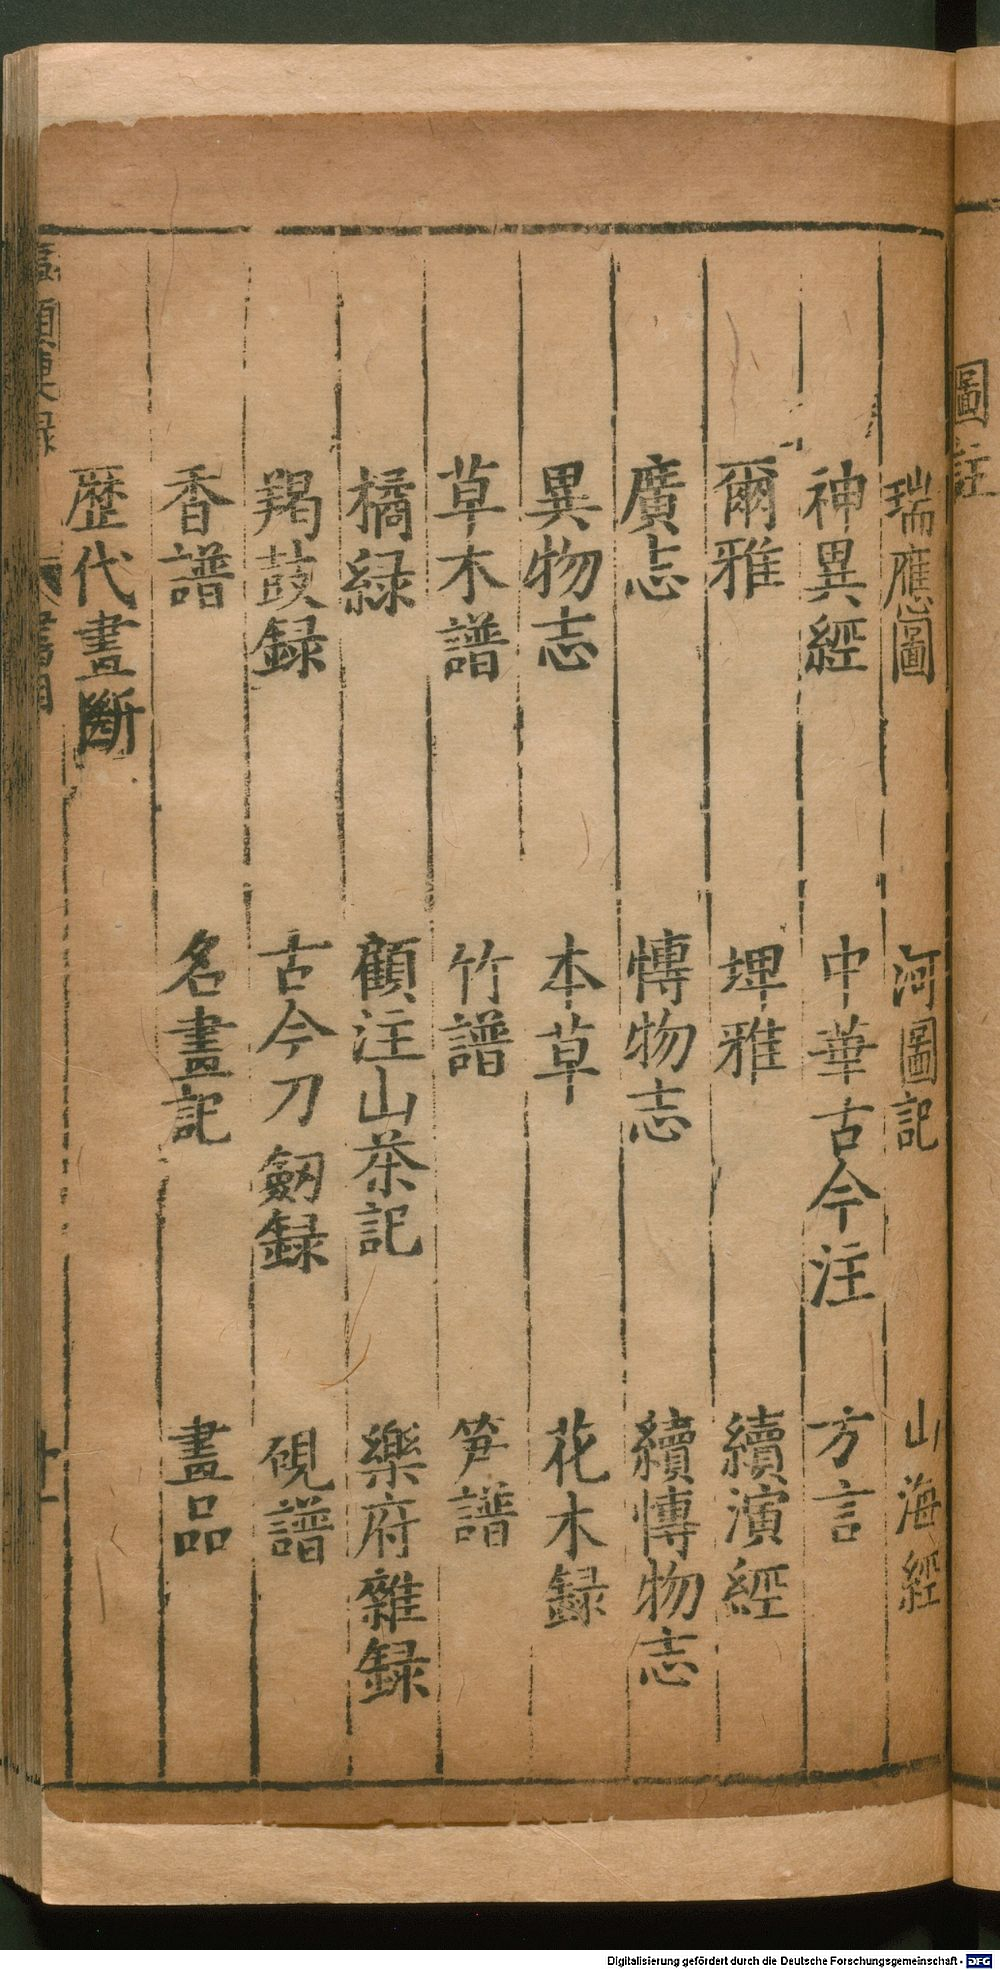 圖註
瑞應圖 河圖記 山海經
神異經 中華古今注 方言
爾雅 埤雅 續演經
廣志 愽物志 續愽物志
異物志 本草 花木録
草木譜 竹譜 笋譜
橘緑 顧注山茶記 樂府雜録
羯鼓録 古今刀劔録 硯譜
香譜 名畫記 畫品
歷代畫断
Digitalisierung gefördert durch die Deutsche Forschungsgemeinschaft - DFG